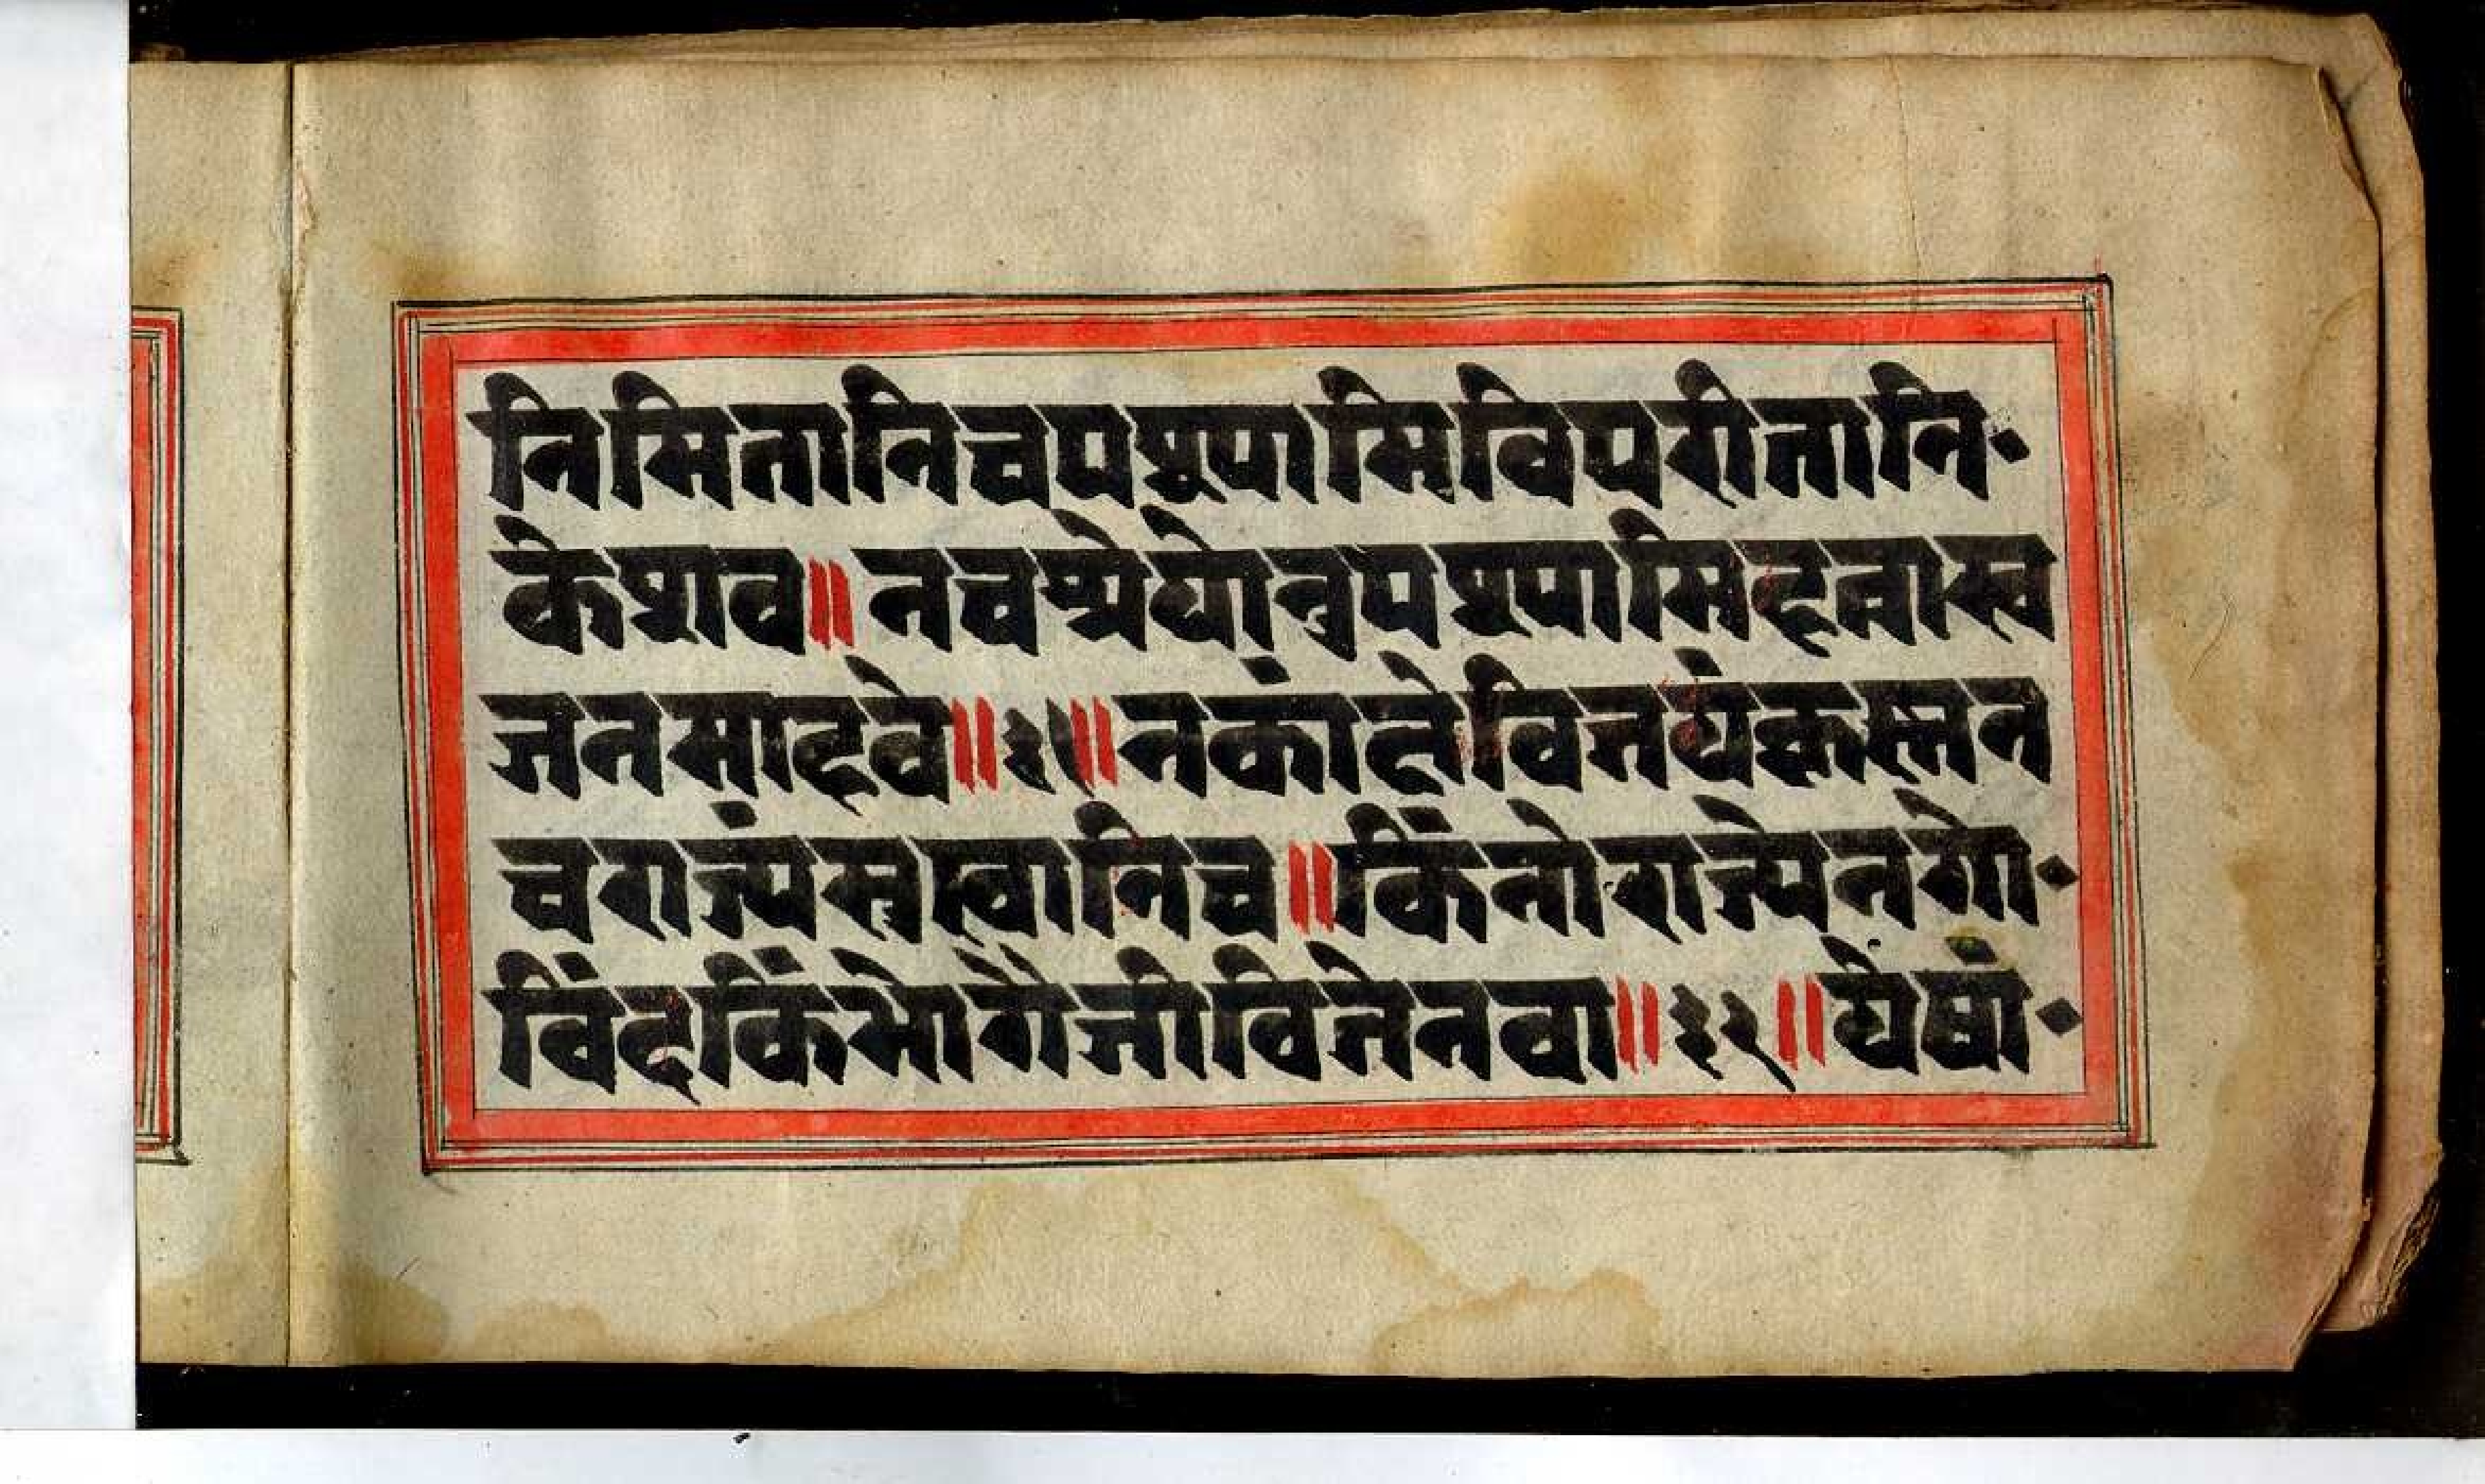 निमितानिचपश्यामिविपरीतानि·
केशव॥नचश्रेयोनुपश्यामिहत्वास्व
जनमाहवे॥३१॥नकांक्षेविजयंकृष्णन
चराज्यंसुखानिच॥किंनोराज्येनगो·
विंदकिंभोगैर्जीवितेनवा॥३२॥येषां·